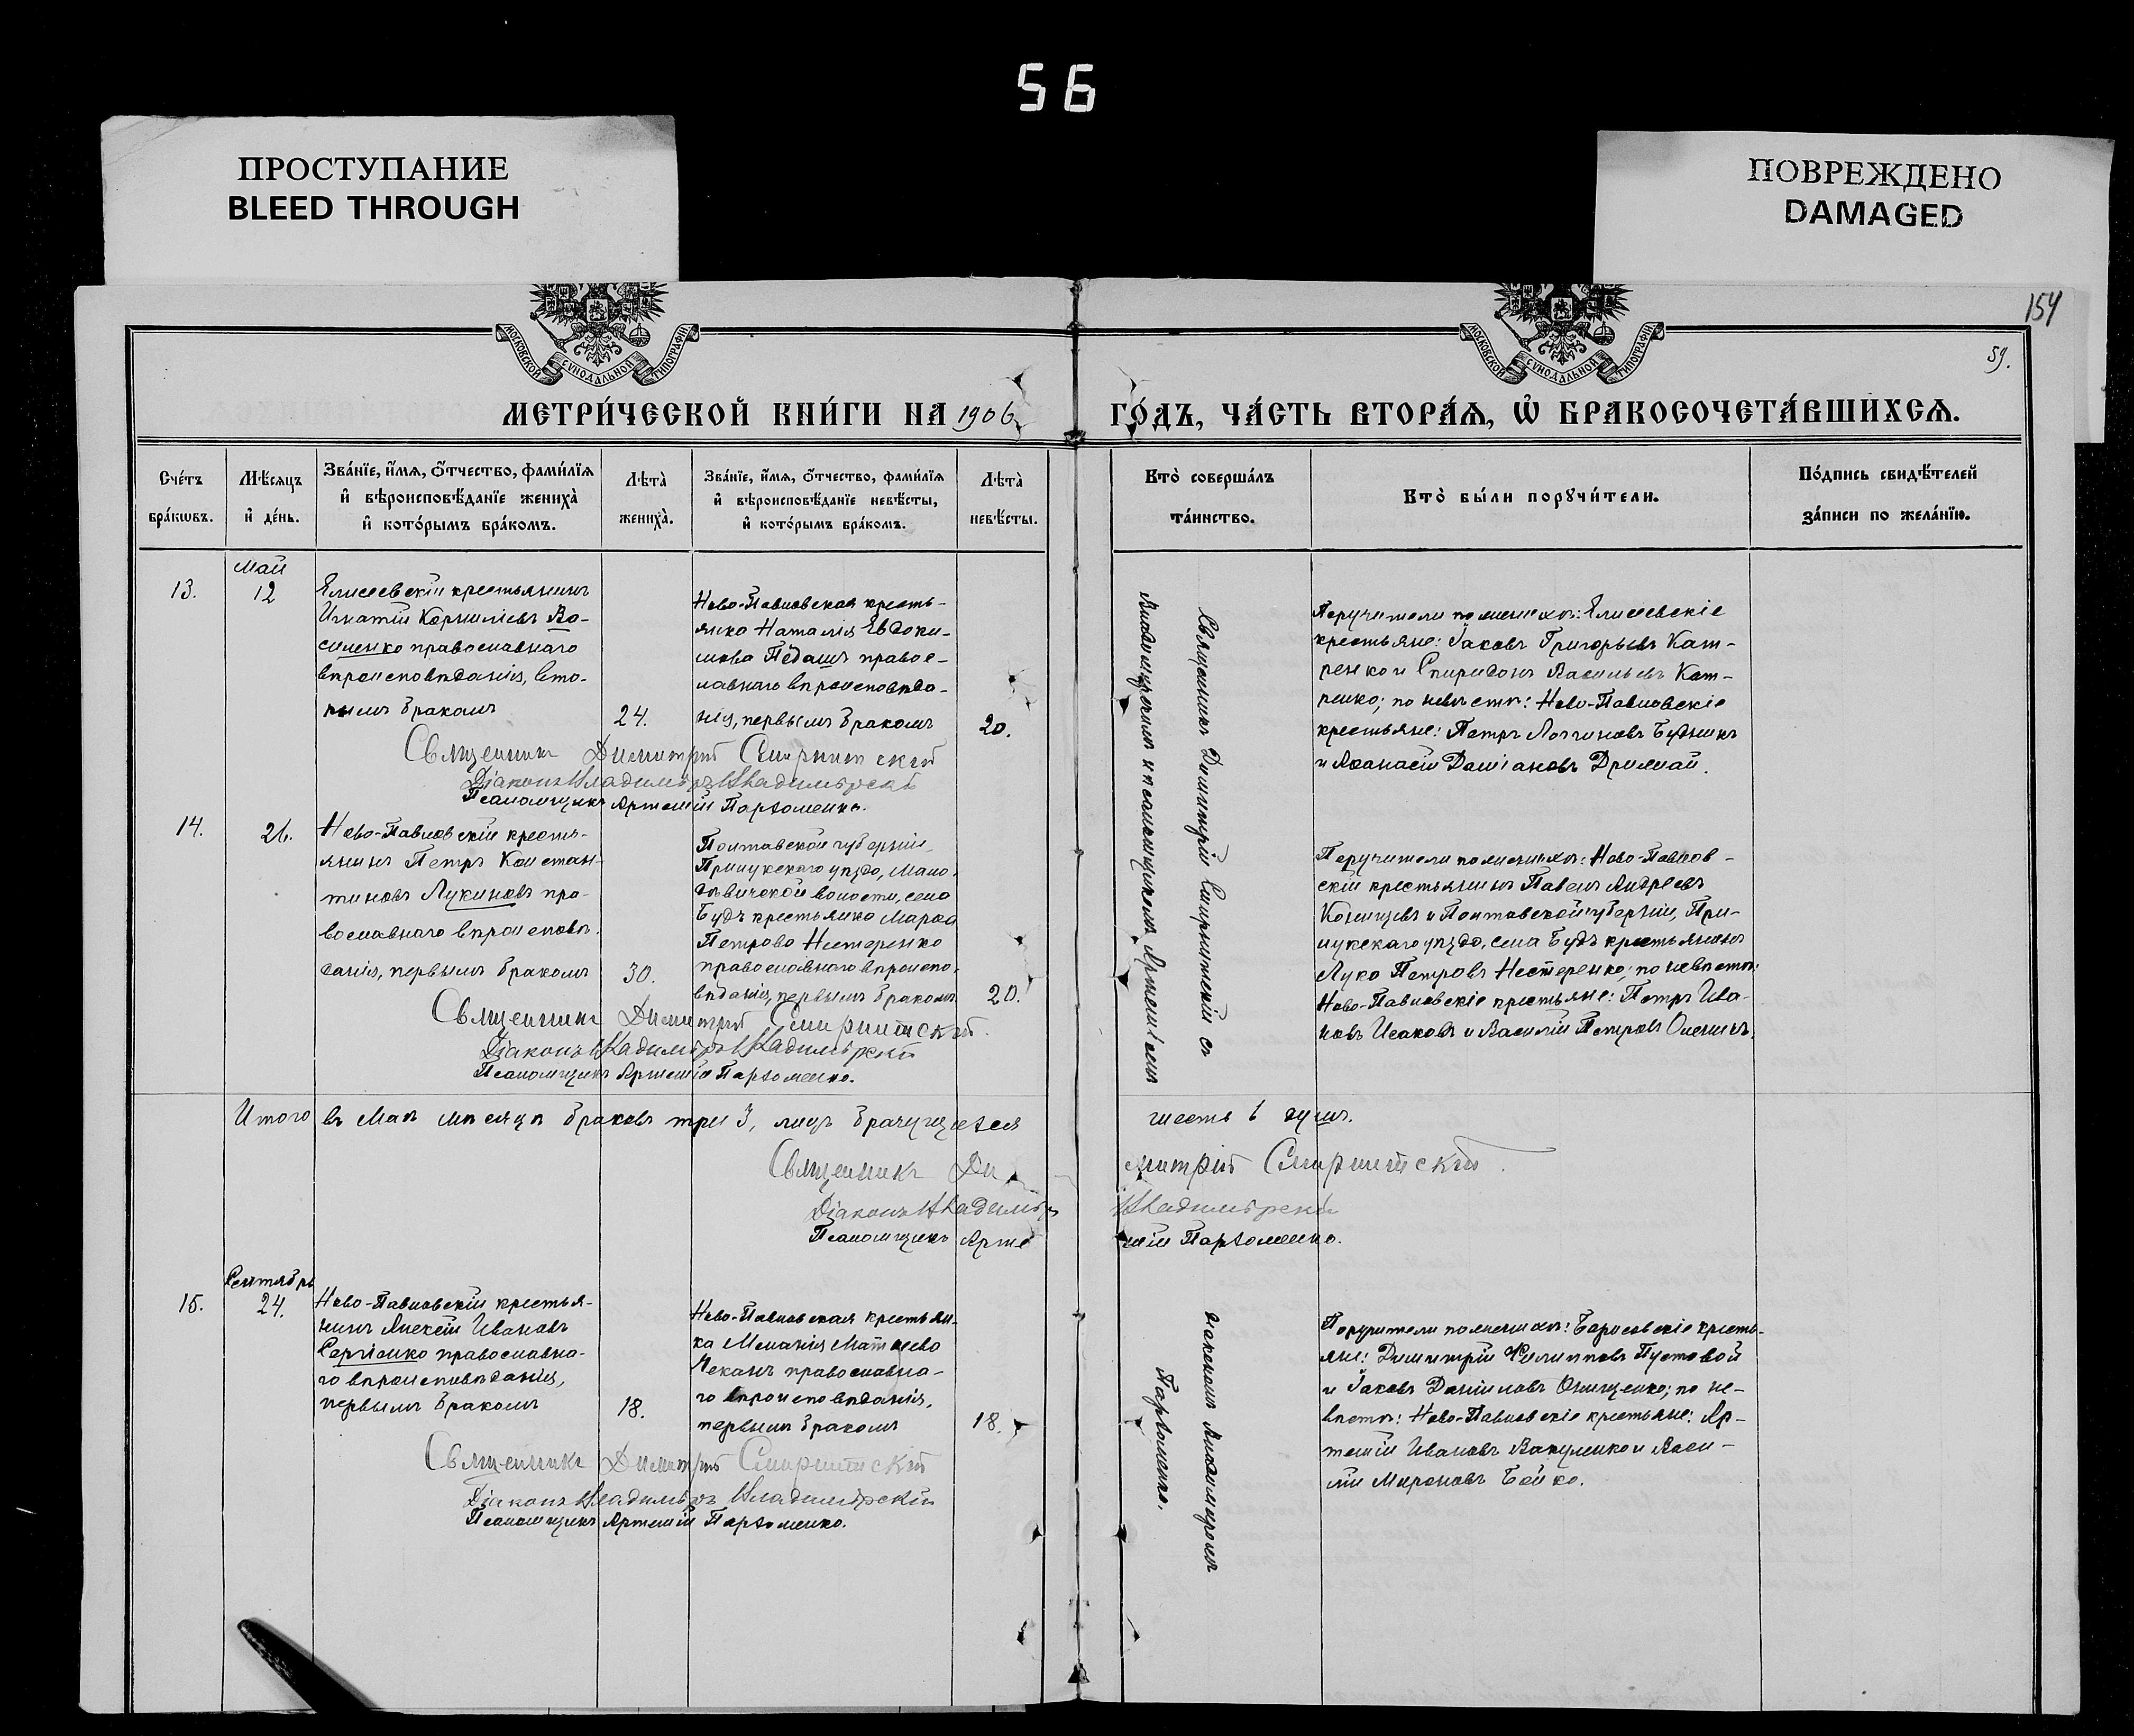 56
ПРОСТУПАНИЕ
BLEED THROUGH
ПОВРЕЖДЕНО
DAMAGED
154
59.
МОСКОВСКОЙ СѴНОДАЛЬНОЙ ТИПОГРАФІИ
МОСКОВСКОЙ СѴНОДАЛЬНОЙ ТИПОГРАФІИ
МЕТРИ́ЧЕСКОЙ КНИ́ГИ НА 1906
ГО́ДЪ, ЧА́СТЬ ВТОРА́Я, Ѽ БРАКОСОЧЕТА́ВШИХСЯ.
Сче́тъ
бра́кѡвъ.
Мѣ́сяцъ
и҆ де́нь.
Зва́нїе, и҆́мя, ѻ҆́тчество, фами́лїя
и҆ вѣроисповѣ́данїе жениха̀
и҆ кото́рымъ бра́комъ.
Лѣта̀
жениха̀.
Зва́нїе, и҆́мя, ѻ҆́тчество, фами́лїя
и҆ вѣроисповѣ́данїе невѣ́сты,
и҆ кото́рымъ бра́комъ.
Лѣта̀
невѣ́сты.
Кто̀ соверша́лъ
та́инство.
Кто̀ бы́ли порꙋчи́тели.
По́дпись свидѣ́телей
за́писи по жела́нїю.
Май
13.
12
Елисеевскій крестьянинъ
Игнатій Корниліевъ Ва-
силенко православнаго
вѣроисповѣданія, вто-
рымъ бракомъ
24.
Ново-Павловская кресть-
янка Наталія Евдоки-
мова Педашъ правос-
лавнаго вѣроисповѣда-
нія, первымъ бракомъ
20.
Священникъ Димитрій Смирнитскій с
діакономъ
Владиміромъ и псаломщикомъ Артеміемъ
Поручители по женихѣ: Елисеевскіе
крестьяне: Іаковъ Григорьевъ Кат-
ренко и Спиридонъ Васильевъ Кат-
ренко; по невѣстѣ: Ново-Павловскіе
крестьяне: Петръ Логгиновъ Будникъ
и Аѳанасій Даміановъ Дрималй.
Священникъ Димитрій Смирнитскій
Діаконъ Владиміръ Владимірскій
Псаломщикъ Артемій Пархоменко.
14.
26.
Ново-Павловскій кресть-
янинъ Петръ Констан-
тиновъ Лукиновъ пра-
вославнаго вѣроисповѣ-
данія, первымъ бракомъ
30.
Полтавской губерніи,
Прилукскаго уѣзда, Мало-
дѣвичской волости, села
Будъ крестьянка Марѳа
Петрова Нестеренко
православнаго вѣроиспо-
вѣданія, первымъ бракомъ
20.
Поручители по женихѣ: Ново-Павлов-
скій крестьянинъ Павелъ Андреевъ
Полтавской губерніи, При-
лукскаго уѣзда, села Будъ крестьянинъ
Лука Петровъ Нестеренко; по невѣстѣ:
Ново-Павловскіе крестьяне: Петръ Ива-
новъ Исаковъ и Василій Петровъ
Священникъ Димитрій Смирнитскій.
Діаконъ Владиміръ Владимірскій
Псаломщикъ Артемій Пархоменко.
Итого въ Маѣ мѣсяцѣ браковъ три 3, лицъ брачущихся шесть 6 душъ.
Священникъ Димитрій Смирнитскій.
Діаконъ Владиміръ Владимірскій
Псаломщикъ Артемій Пархоменко.
Сентябрь
15.
24.
Ново-Павловскій крестья-
нинъ Алексій Ивановъ
Сергіенко православна-
го вѣроисповѣданія,
первымъ бракомъ
18.
Ново-Павловская крестьян-
ка Меланія Матѳеева
Чеканъ православна-
го вѣроисповѣданія,
первымъ бракомъ
18.
діакономъ Владиміромъ
Пархоменко.
Поручители по женихѣ: Борисовскіе кресть-
яне: Димитрій Филипповъ Пустовой
и Іаковъ Даниловъ Онищенко; по не-
вѣстѣ: Ново-Павловскіе крестьяне: Ар-
темій Ивановъ Вакуленко и Васи-
лій Мироновъ Бойко.
Священникъ Димитрій Смирнитскій
Діаконъ Владиміръ Владимірскій
Псаломщикъ Артемій Пархоменко.